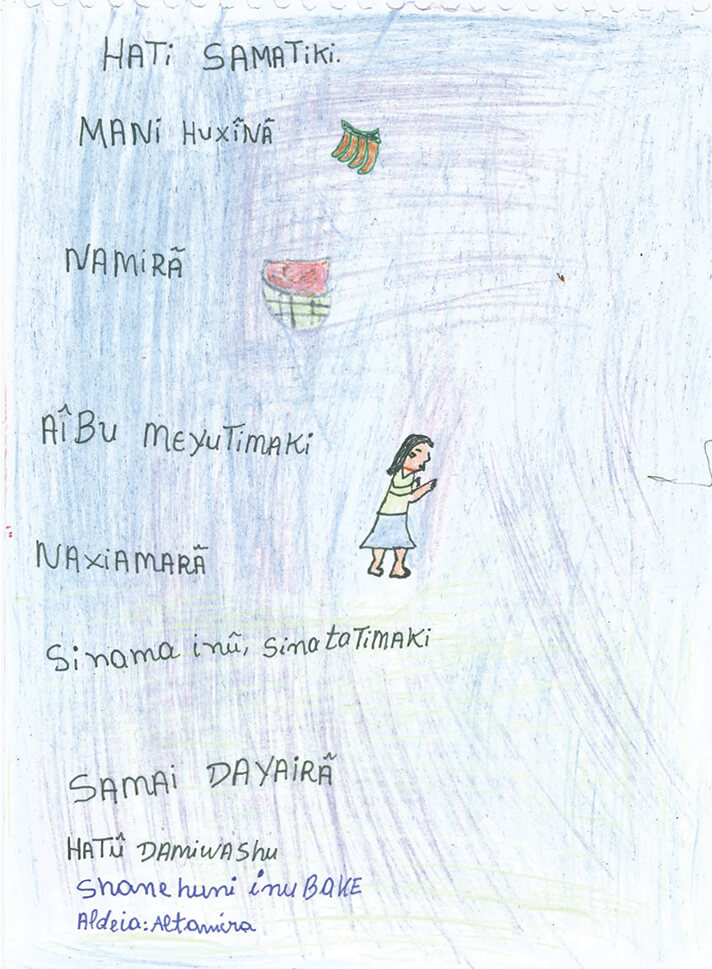 HATI SAMATIKI.
MANI HUXÎNÃ
NAMIRÃ
AÎBU MEYUTIMAKI
NAXIAMARÃ
Sinama inũ, sinataTIMAKI
SAMAI DAYAIRÃ
HATŨ DAMIWAShu
Shane huni inu BAKE
Aldeia: Altamira